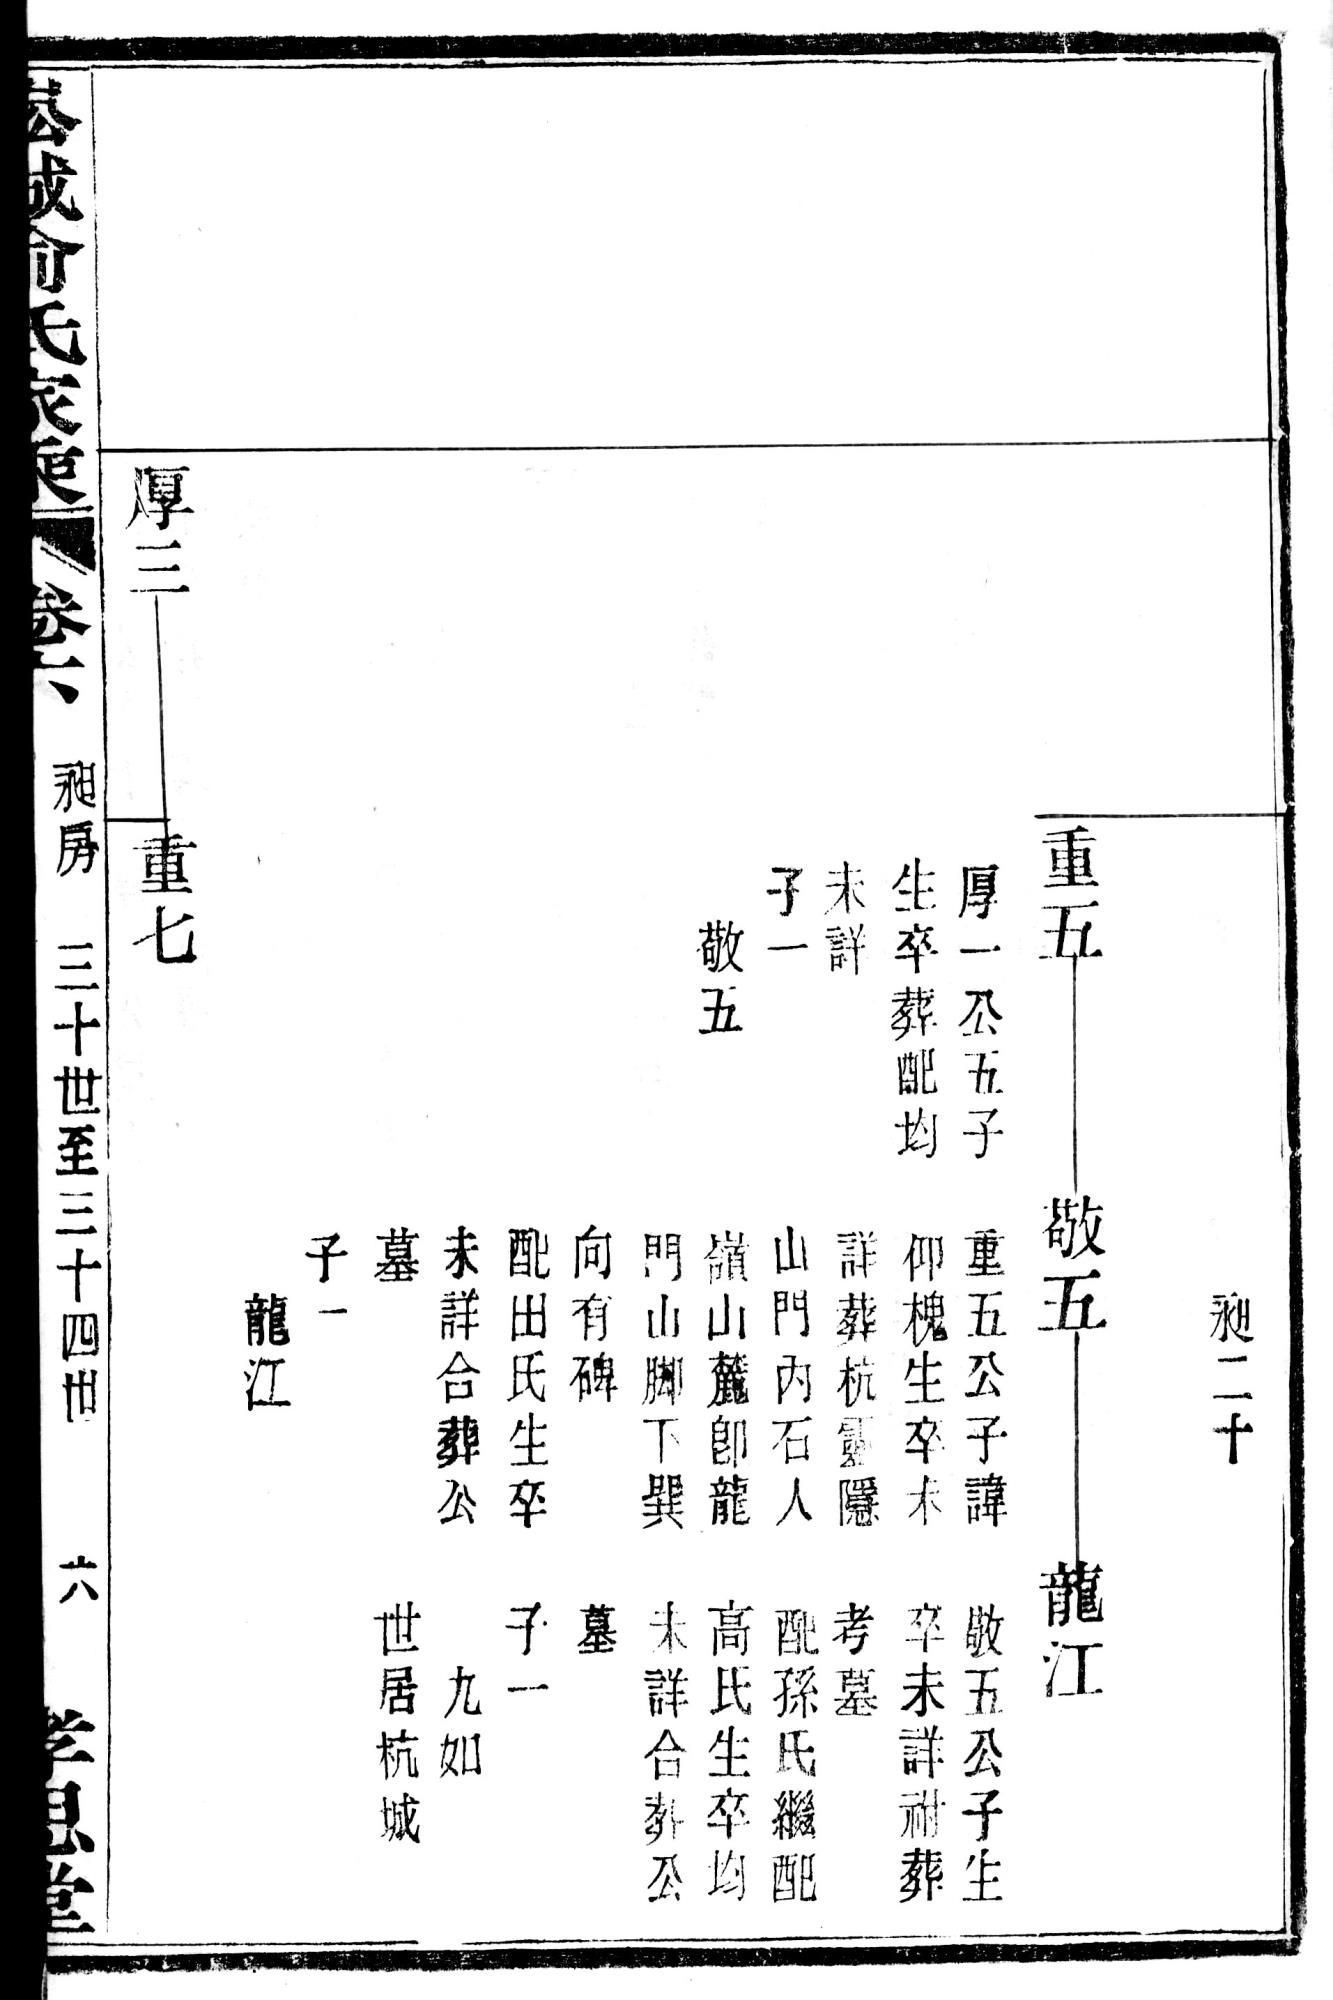 昶二十
重五
厚一公五子
生卒葬配均
未詳
子一
敬五
敬五
重五公子諱
仰槐生卒未
詳葬杭靈隱
山門內石人
嶺山麓卽龍
門山脚下巽
向有碑
配田氏生卒
未詳合葬公
墓
子一
龍江
龍江
敬五公子生
卒未詳祔葬
考墓
配孫氏繼配
高氏生卒均
未詳合葬公
墓
子一
九如
世居杭城
厚三
重七
城俞氏家乘
卷六
昶房
三十世至三十四世
六
孝思堂